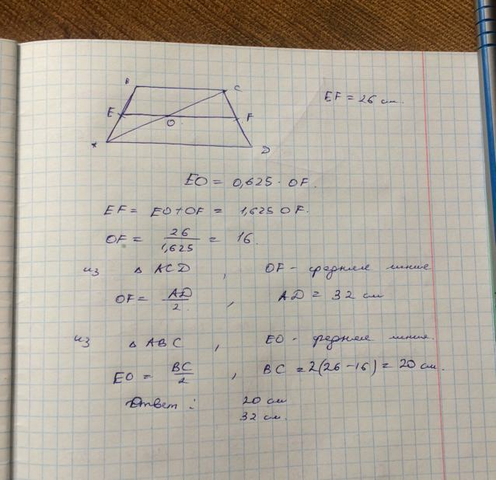 B
C
EF = 26 см.
E
O
F
A
D
EO = 0,625 · OF.
EF = EO + OF = 1,625 OF.
OF = 26/1,625 = 16.
из △ ACD, OF - средняя линия
OF = AD/2, AD = 32 см
из △ ABC, EO - средняя линия.
EO = BC/2, BC = 2(26-16) = 20 см.
Ответ: 20 см
32 см.